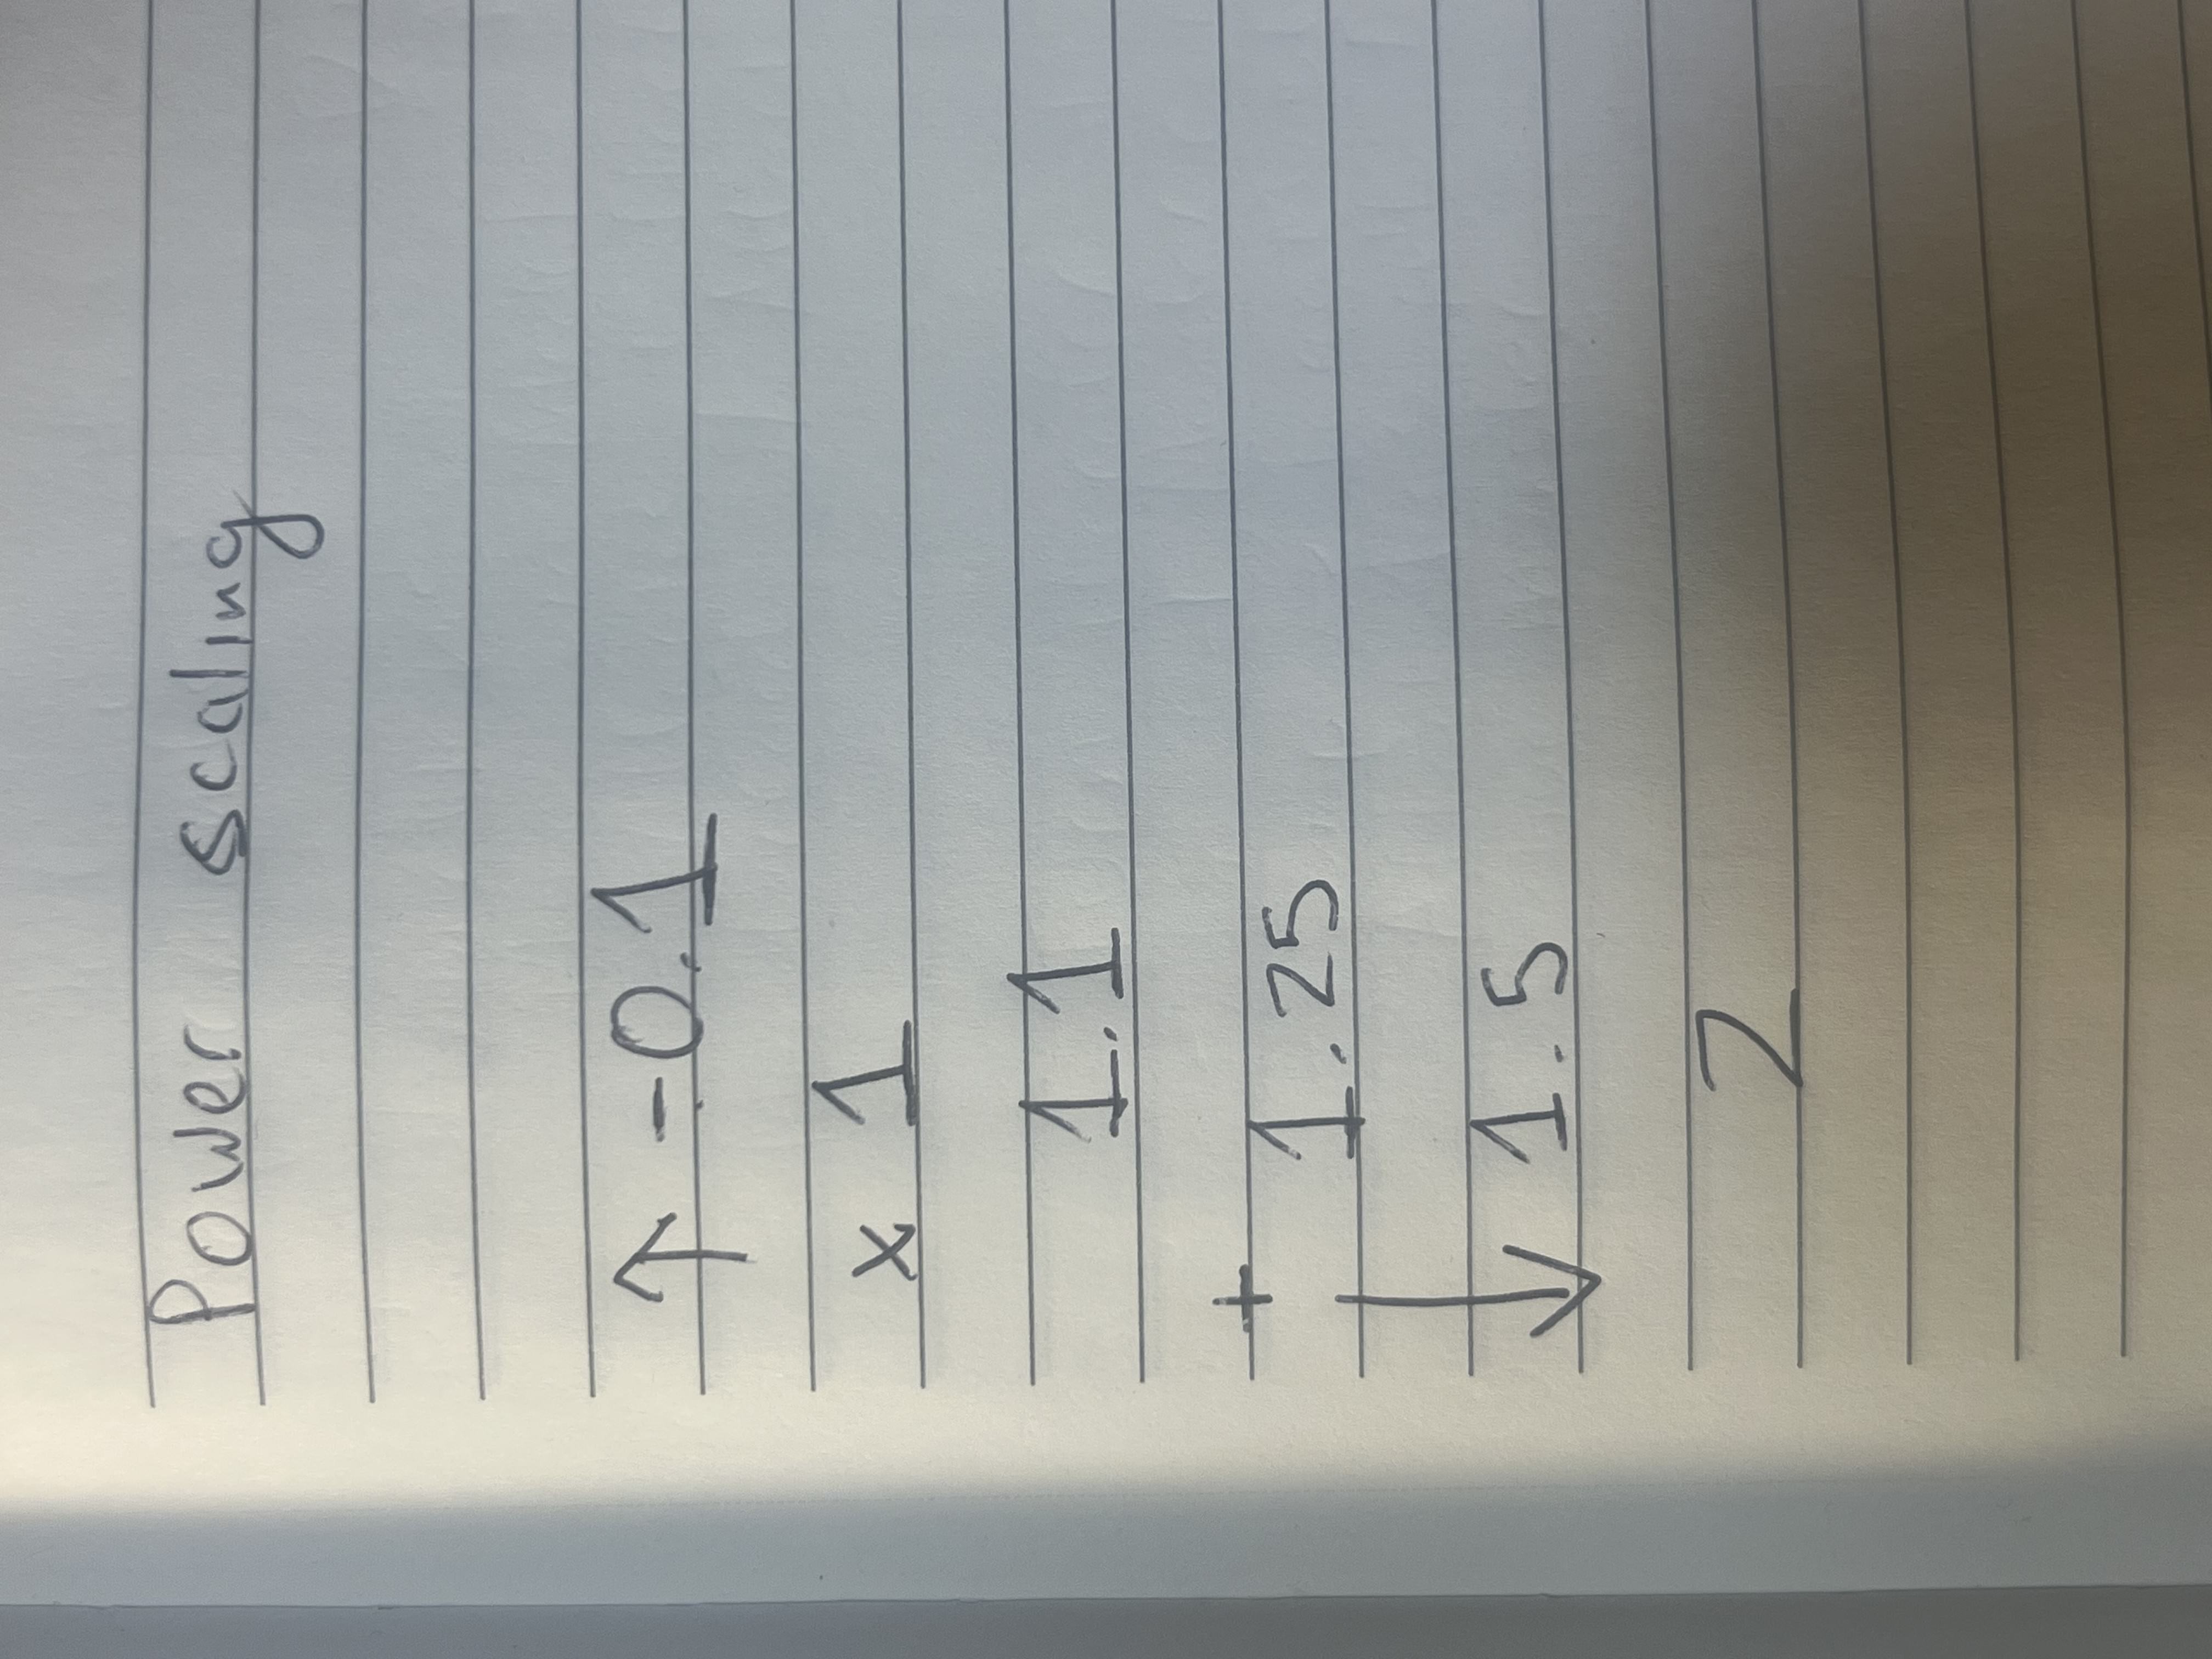 Power scaling
↑ -0.1
x 1
1.1
+ 1.25
↓ 1.5
2